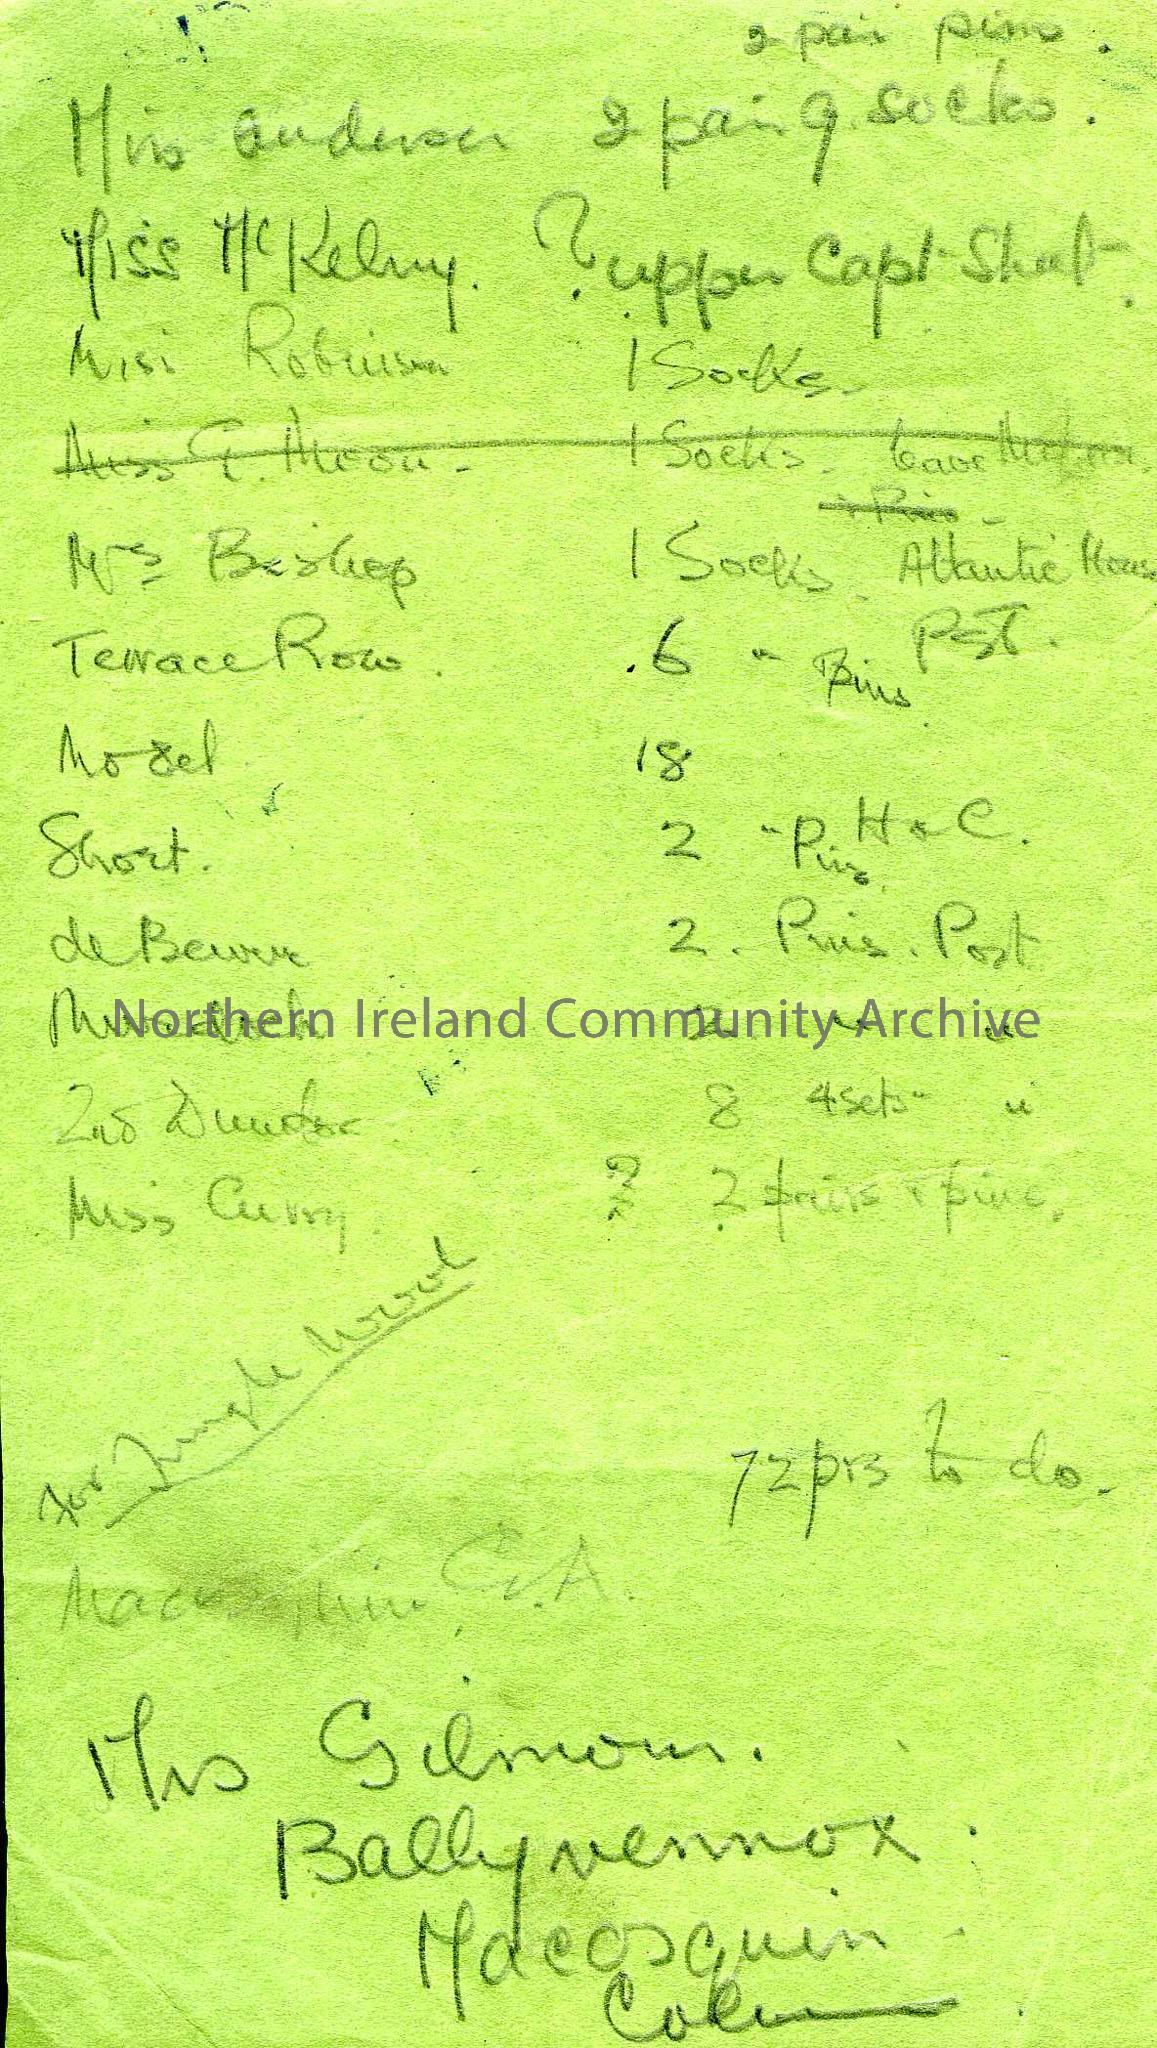 2 pair pins.
Miss Anderson 2 pair g. socks.
Miss McKelvy. ? upper Capt Street.
Miss Robinson 1 Socks.
Miss G. 1 Socks. Leave
+ Pins -
Mrs Bishop 1 Socks. Atlantic House
Terrace Row. 6 " Pins Post.
Model 18
Short. 2 " Pins H & C.
de 2. Pins. Post
Northern Ireland Community Archive
2nd 8 4 sets " "
Miss Curry. ? 2 pairs + pins.
for Jungle Wool
72 prs to do.
Macosquin G.A.
Mrs Gilmour.
Ballyvennox.
Macosquin.